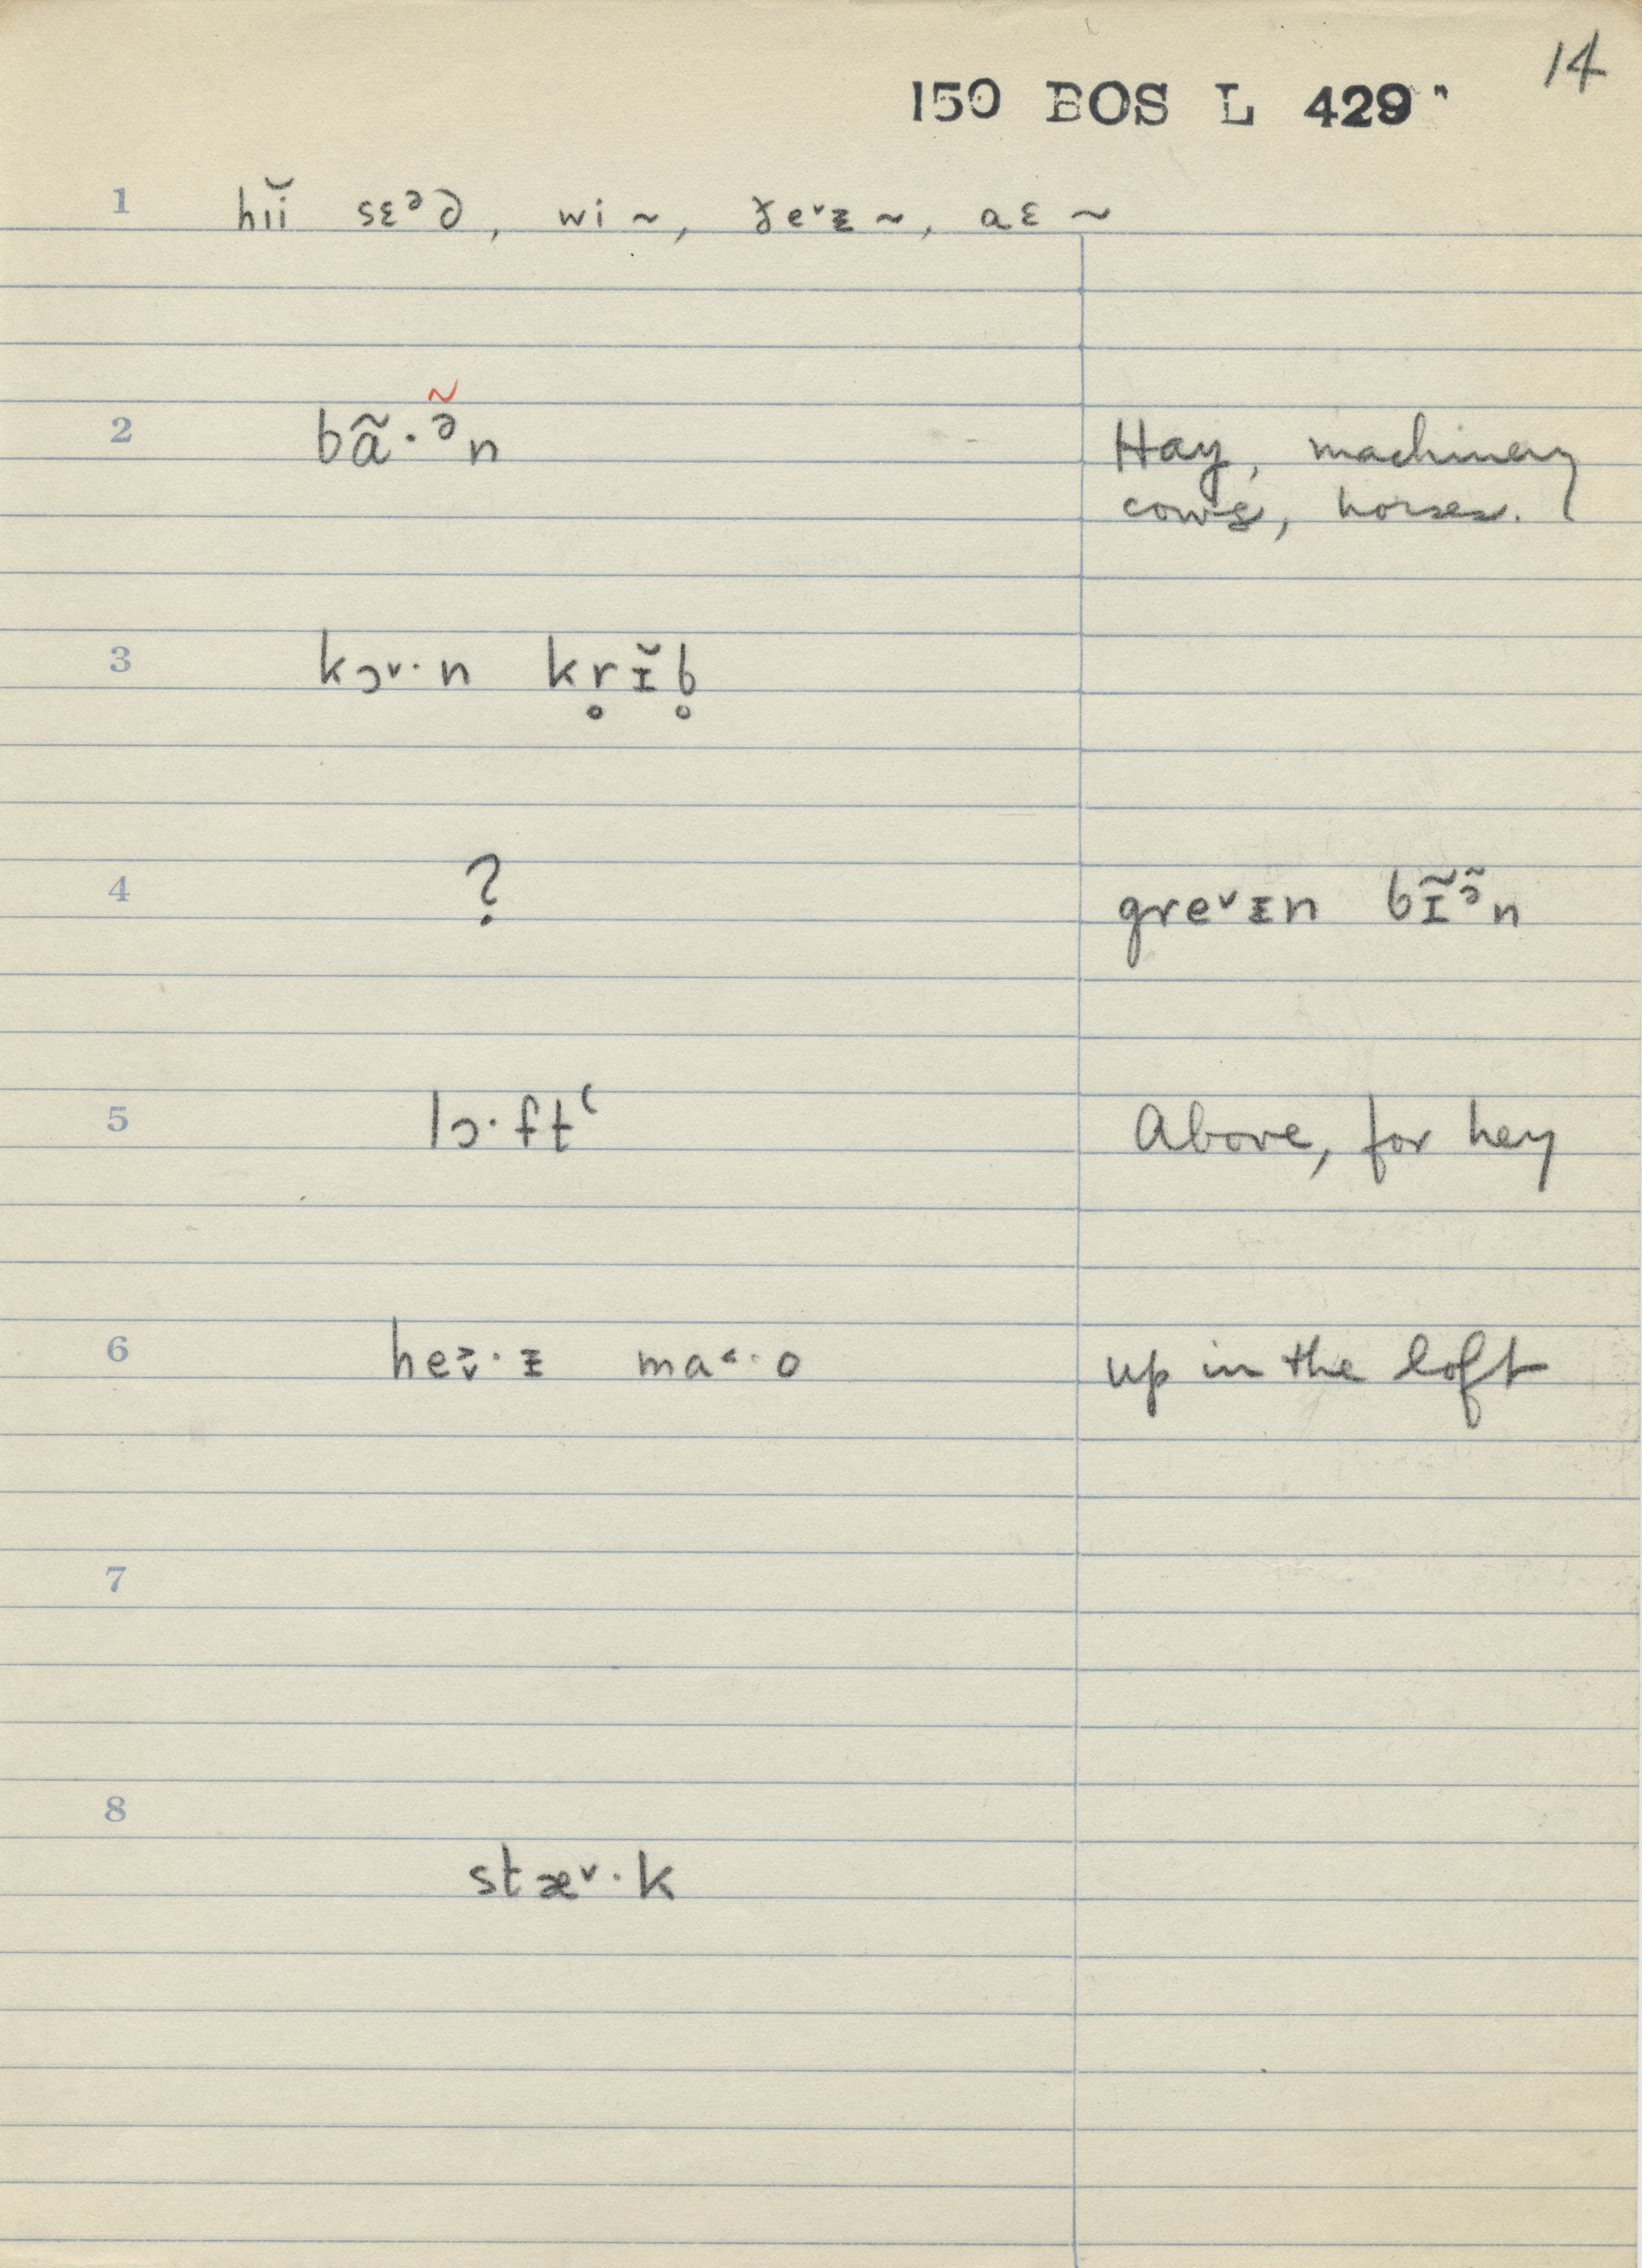 14
150 BOS L 429"
1 hiĭ sɛᵊd, wi ~, ðeˇɪ ~, aɛ ~
2 bã·ᵊ̃n Hay, machinery
cows, horses.
3 kɔˇ·n kr̥ɪ̆b̥
4 ? greˇɪn bɪ̃ᵊ̃n
5 lɔ·ftʿ Above, for hay
6 he˃ˇ·ɪ ma˂·o up in the loft
7
8 stæˇ·k